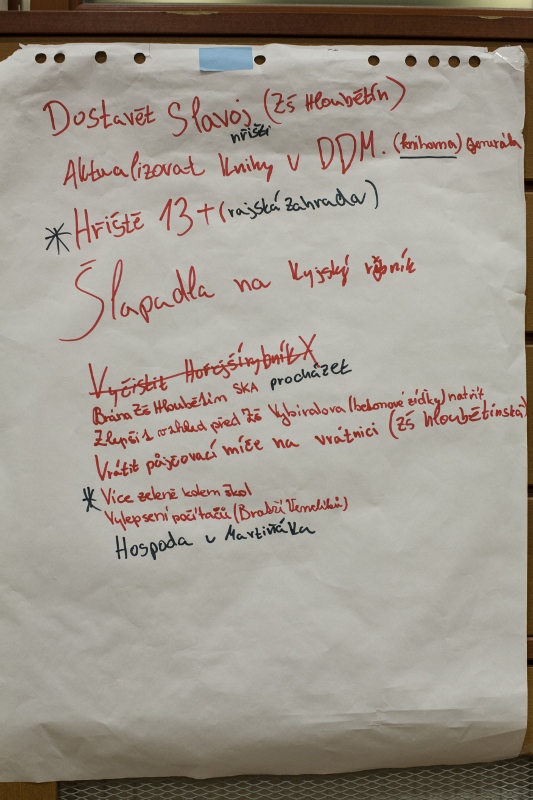 Dostavět Slavoj (ZŠ Hloubětín)
hřiště
Aktualizovat knihy v DDM. (knihovna) generála
* Hřiště 13+ (rajská zahrada)
Šlapadla na Kyjský rybník
Vyčistit Horejší rybník X
Brána ZŠ Hloubětínská procházet
Zlepšit vzhled před ZŠ Vybíralova (betonové zídky) natřít
Vrátit půjčovací míče na vrátnici (ZŠ Hloubětínská)
* Více zeleně kolem škol
Vylepšení počítačů (Bratří Venclíků)
Hospoda u